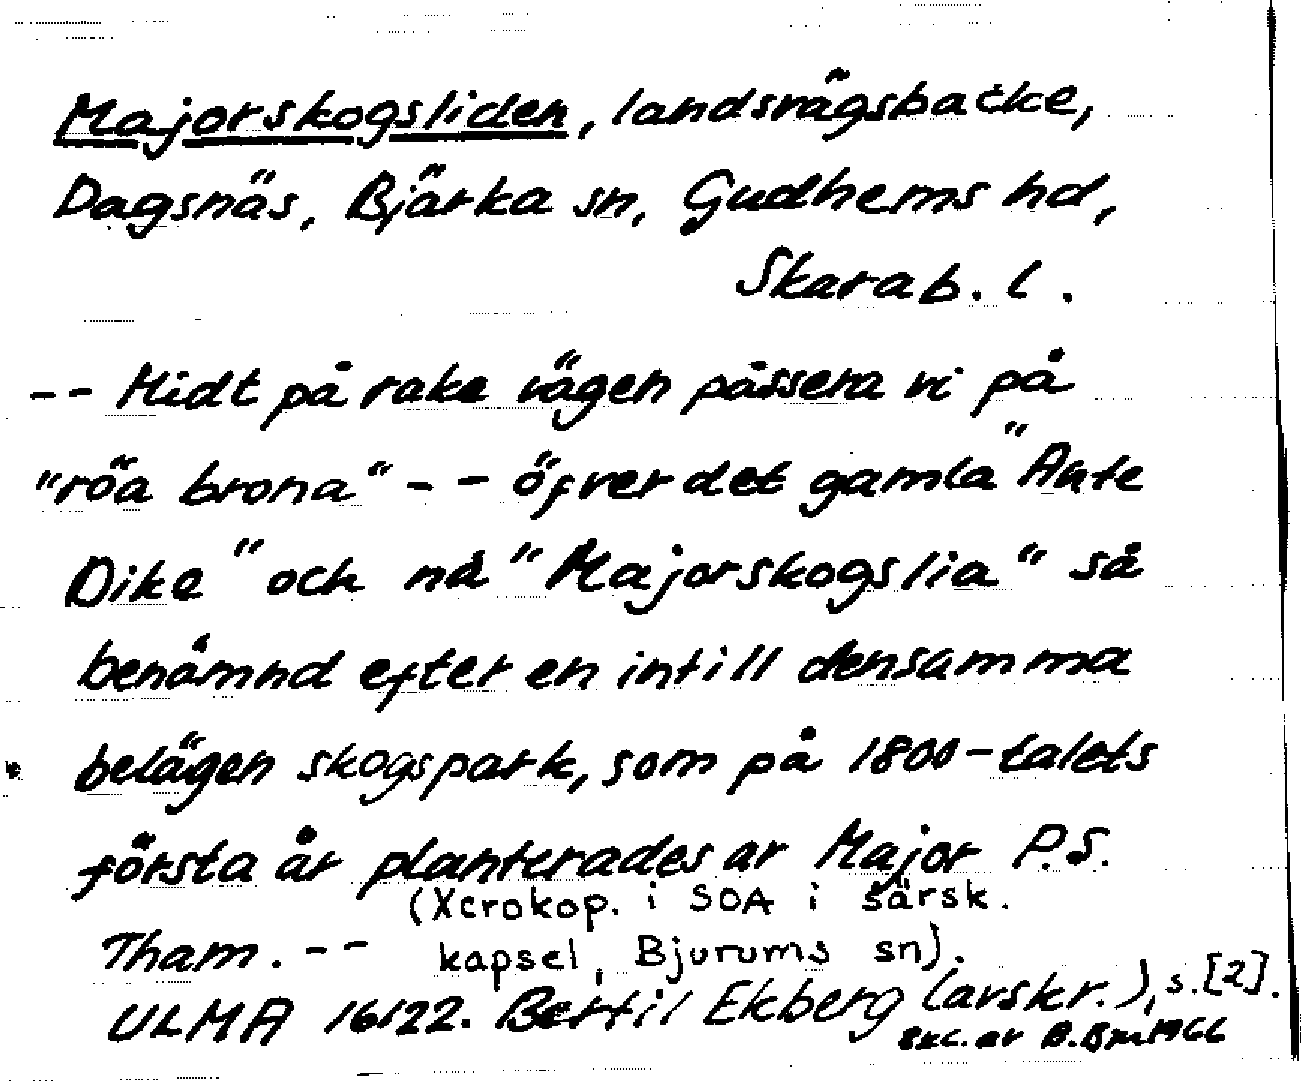 Majorskogsliden, landsvägsbacke,
Dagsnäs, Bjärka sn, Gudhems hd,
Skarab. l.
-- Midt på rake vägen passera vi på
"röa brona" -- öfver det gamla "Ante
Dike" och nå "Majorskogslia" så
benämnd efter en intill densamma
belägen skogspark, som på 1800-talets
första år planterades av Major P.S.
(Xerokop. i SOA i särsk.
Tham. -- kapsel, Bjurums sn).
ULMA 16122. Bertil Ekberg (avskr.), s. [2].
Exc. av B. Bm 1966